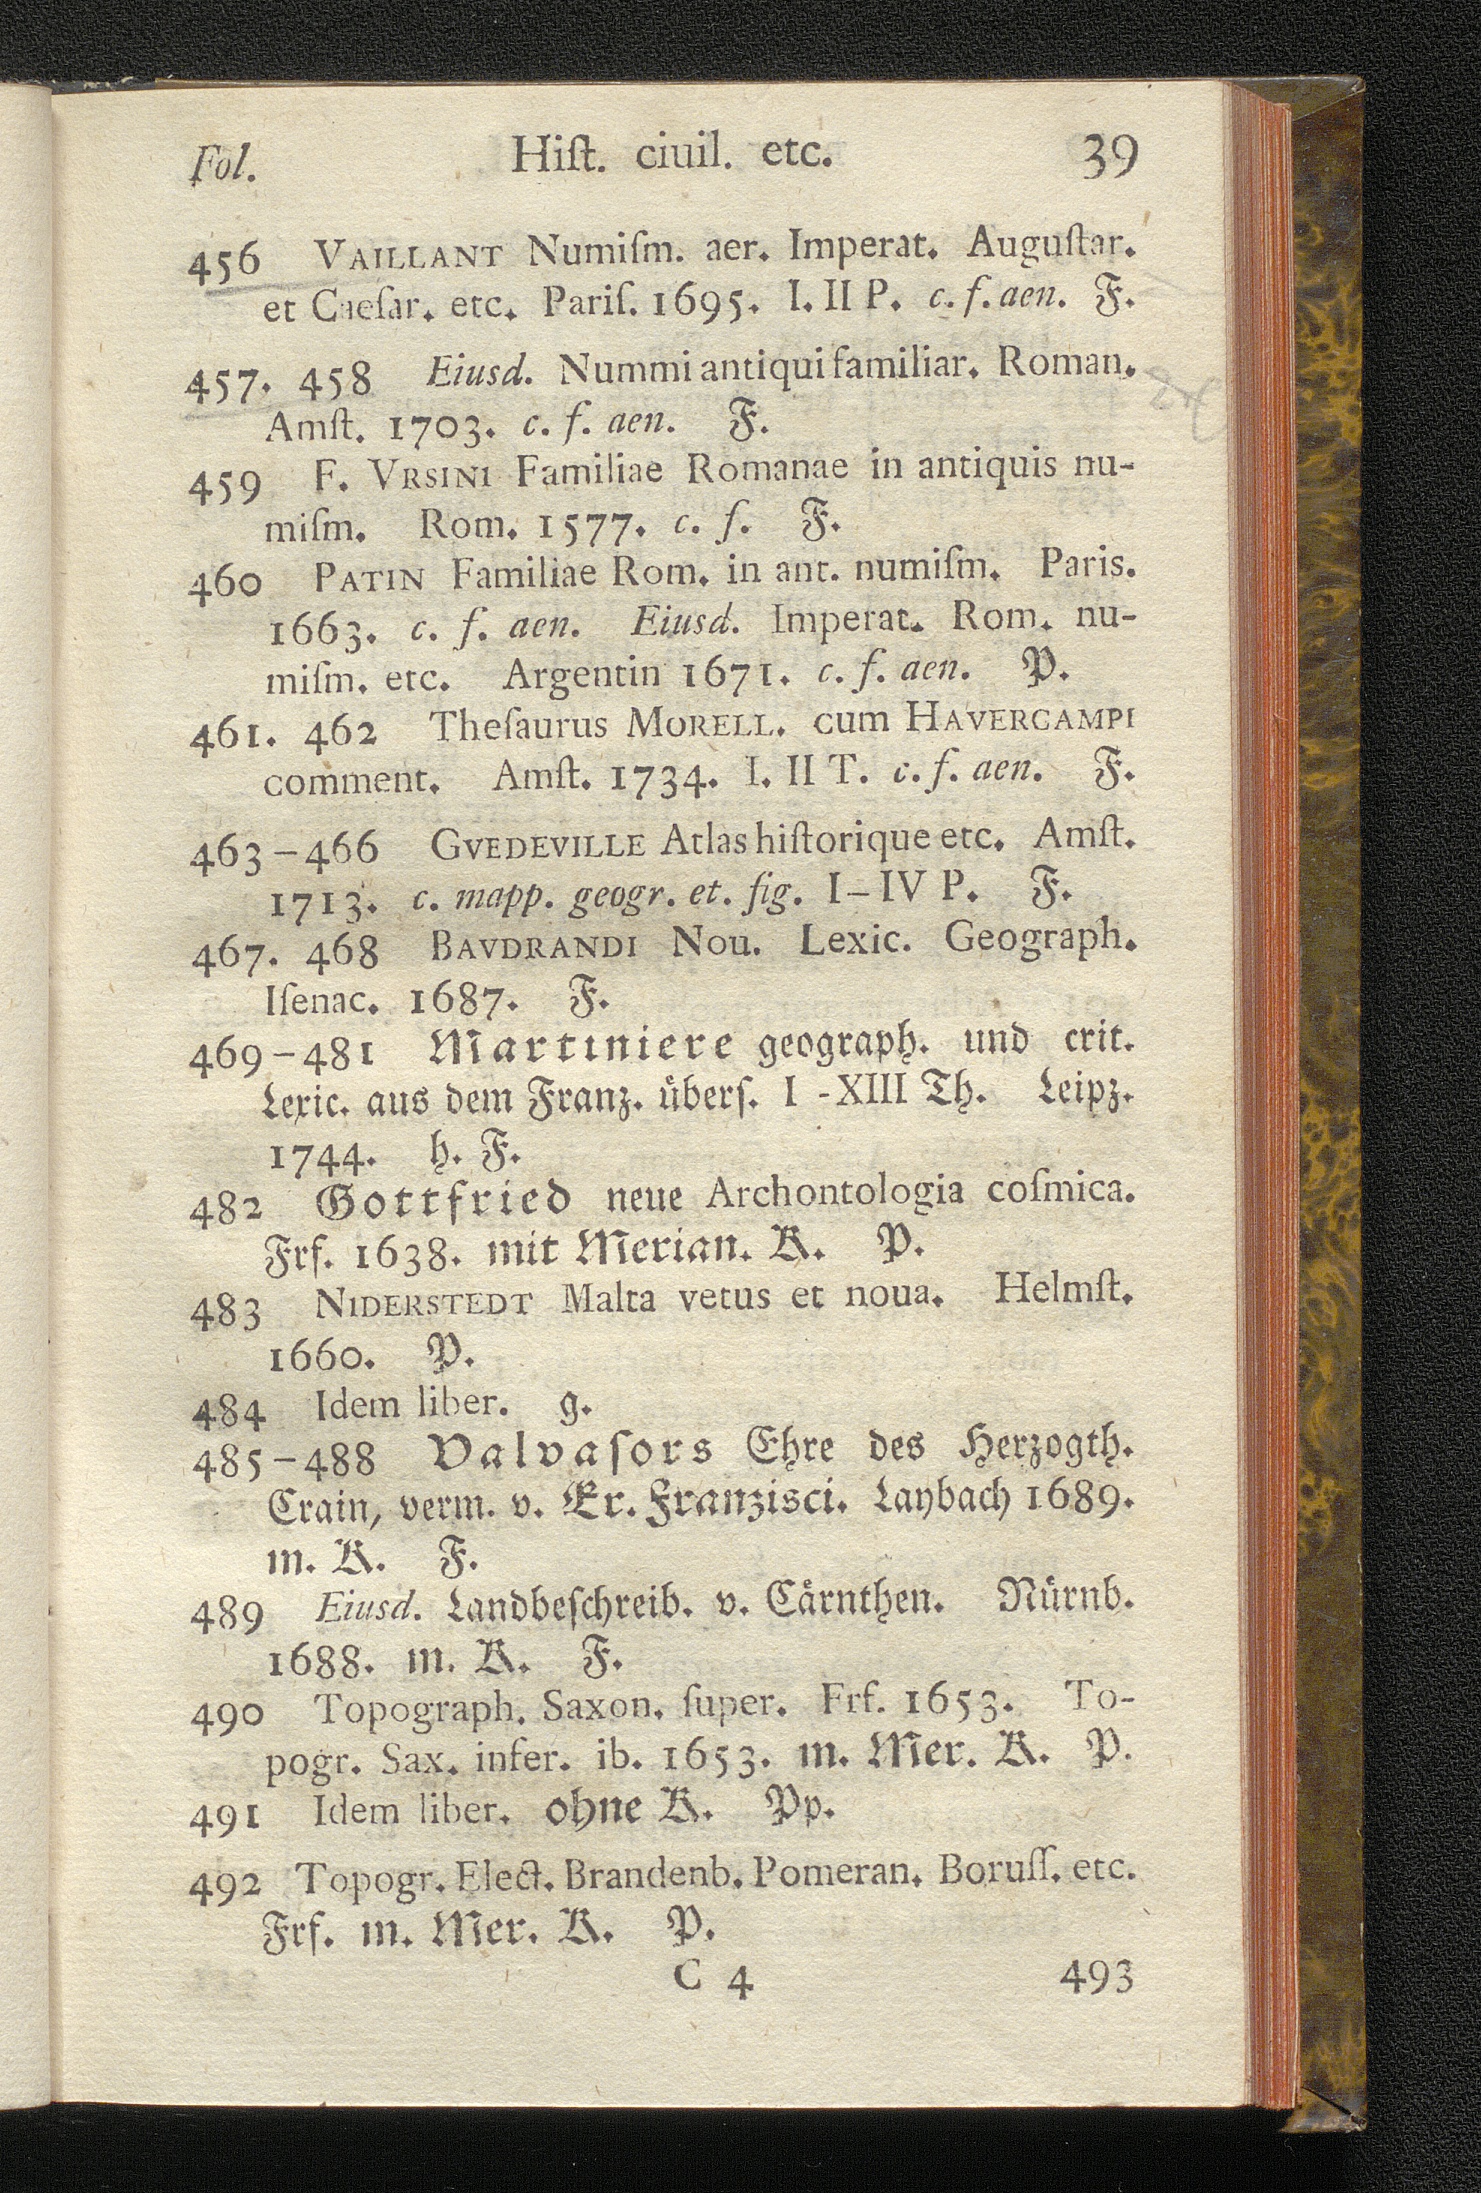 Fol. Hiſt. ciuil. etc. 39
456 VAILLANT Numiſm. aer. Imperat. Auguſtar.
et Caeſar. etc. Pariſ. 1695. I. II P. c. f. aen. F.
457. 458 Eiusd. Nummi antiqui familiar. Roman.
Amſt. 1703. c. f. aen. F.
459 F. VRSINI Familiae Romanae in antiquis nu-
miſm. Rom. 1577. c. f. F.
460 PATIN Familiae Rom. in ant. numiſm. Paris.
1663. c. f. aen. Eiusd. Imperat. Rom. nu-
miſm. etc. Argentin 1671. c. f. aen. P.
461. 462 Theſaurus MORELL. cum HAVERCAMPI
comment. Amſt. 1734. I. II T. c. f. aen. F.
463-466 GVEDEVILLE Atlas hiſtorique etc. Amſt.
1713. c. mapp. geogr. et. fig. I-IV P. F.
467. 468 BAVDRANDI Nou. Lexic. Geograph.
Iſenac. 1687. F.
469-481 Martiniere geograph. und crit.
Lexic. aus dem Franz. überſ. I-XIII Th. Leipz.
1744. h. F.
482 Gottfried neue Archontologia coſmica.
Frf. 1638. mit Merian. K. P.
483 NIDERSTEDT Malta vetus et noua. Helmſt.
1660. P.
484 Idem liber. g.
485-488 Valvaſors Ehre des Herzogth.
Crain, verm. v. Er. Franzisci. Laybach 1689.
m. K. F.
489 Eiusd. Landbeſchreib. v. Cärnthen. Nürnb.
1688. m. K. F.
490 Topograph. Saxon. ſuper. Frf. 1653. To-
pogr. Sax. infer. ib. 1653. m. Mer. K. P.
491 Idem liber. ohne K. Pp.
492 Topogr. Elect. Brandenb. Pomeran. Boruſſ. etc.
Frf. m. Mer. K. P.
C 4 493